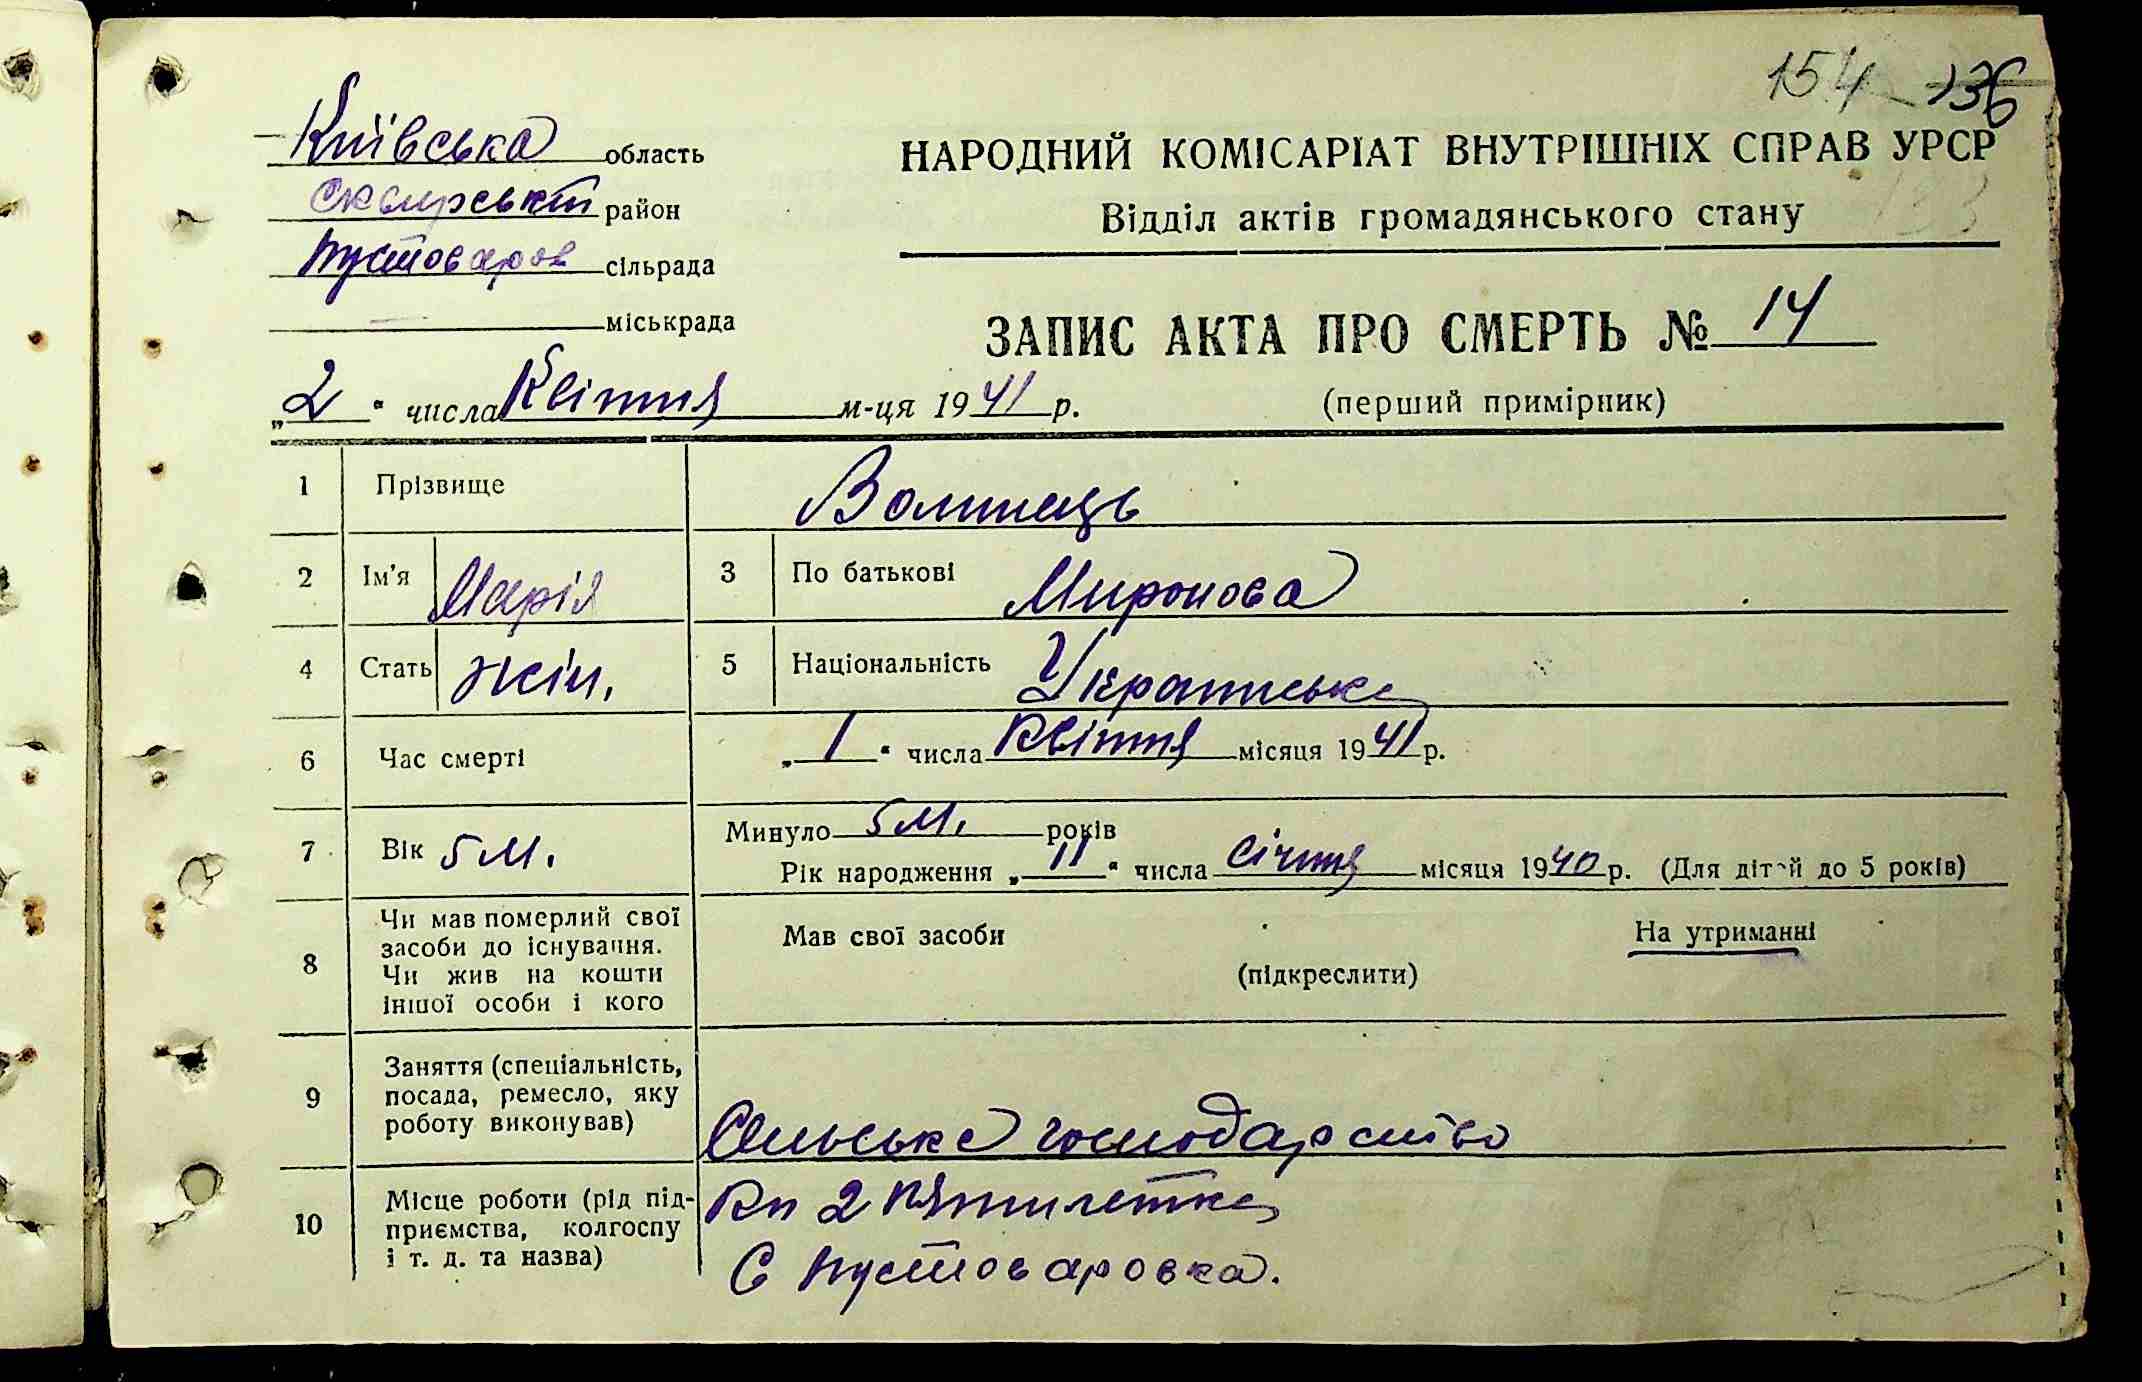 154 136
Київська область
НАРОДНИЙ КОМІСАРІАТ ВНУТРІШНІХ СПРАВ УРСР
Сквирський район
Відділ актів громадянського стану
133
Пустоваров сільрада
міськрада
ЗАПИС АКТА ПРО СМЕРТЬ № 14
„2“ числа Квітня м-ця 1941 р.
(перший примірник)
1 Прізвище Волинець
2 Ім'я Марія 3 По батькові Миронова
4 Стать жін. 5 Національність Українська
6 Час смерті „1“ числа Квітня місяця 1941 р.
7 Вік 5 м. Минуло 5 м. років
Рік народження „11“ числа Січня місяця 1940 р. (Для дітей до 5 років)
8 Чи мав померлий свої
засоби до існування.
Чи жив на кошти
іншої особи і кого
Мав свої засоби На утриманні
(підкреслити)
9 Заняття (спеціальність,
посада, ремесло, яку
роботу виконував)
Сільське господарство
10 Місце роботи (рід під-
приємства, колгоспу
і т. д. та назва)
Кп 2 Пятилетка
С Пустоваровка.